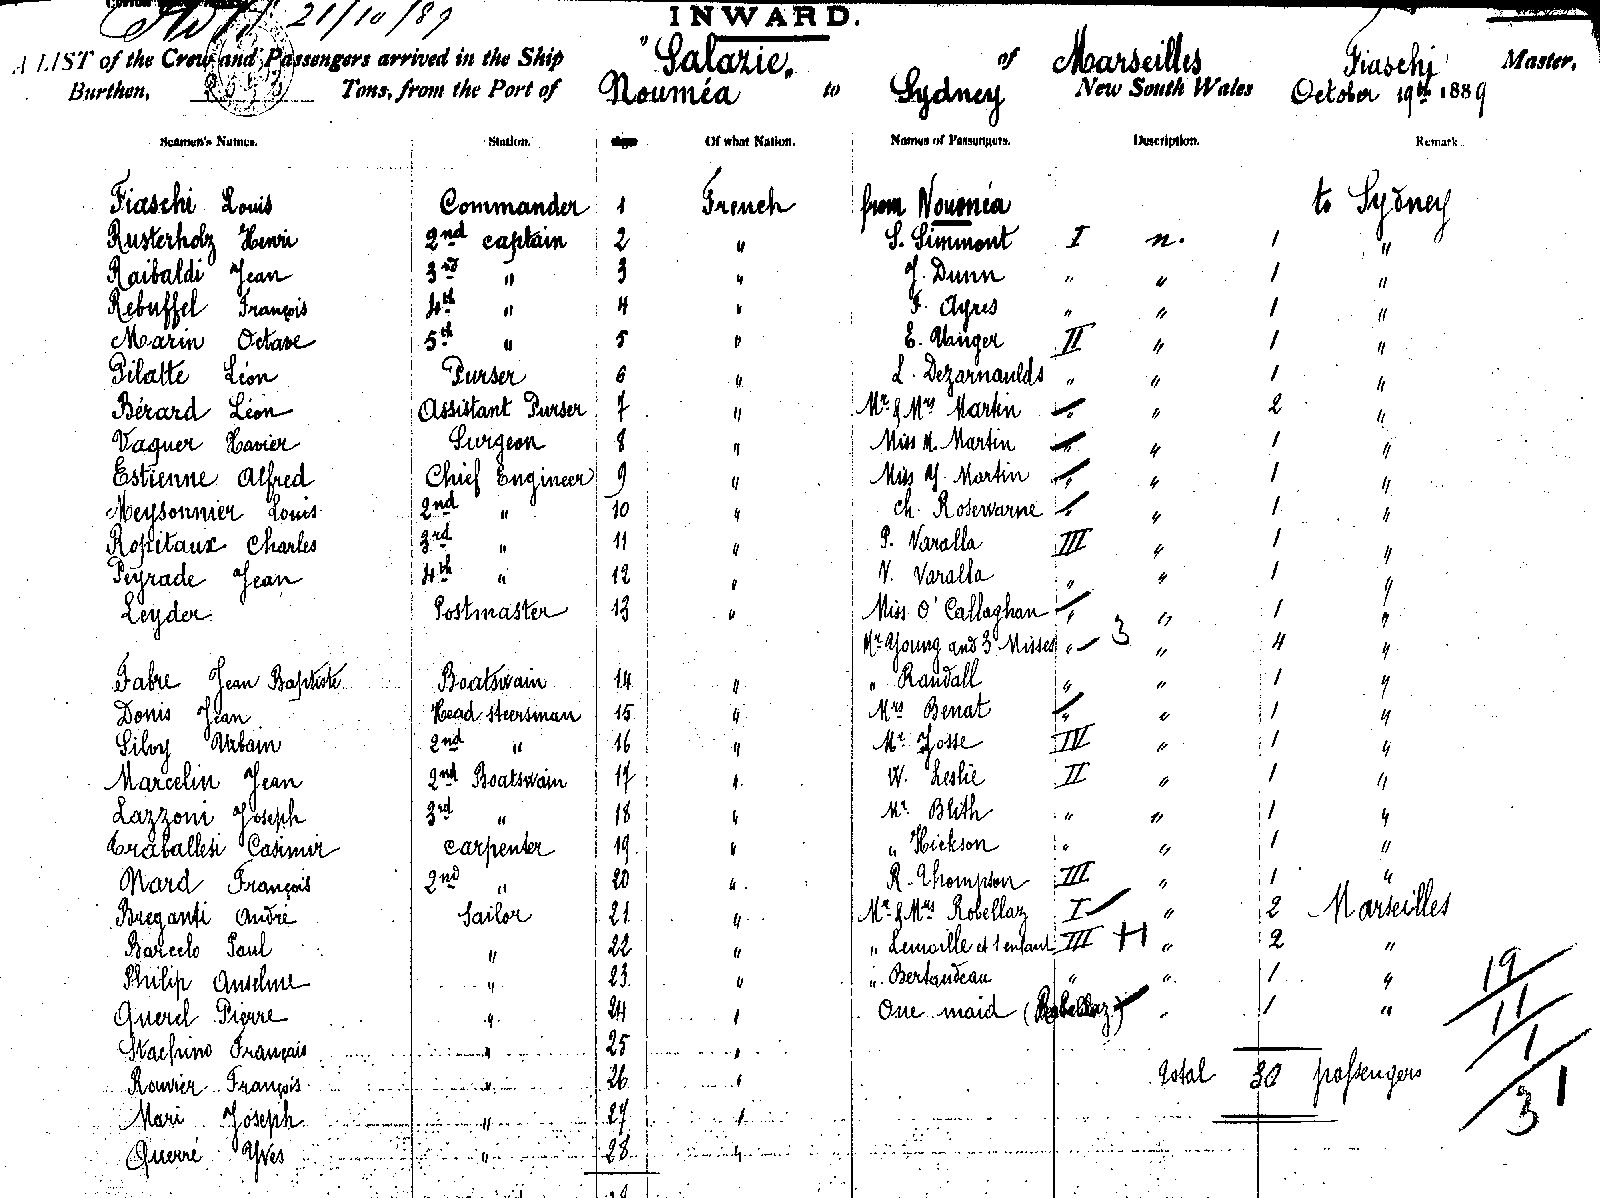 21/10/89
INWARD.
A LIST of the Crew and Passengers arrived in the Ship "Salazie, of Marseilles Fiaschi Master,
Burthen, Tons, from the Port of Nouméa to Sydney New South Wales October 19th 1889
Seamen's Names. Station. Age Of what Nation. Names of Passengers. Description. Remark
Fiaschi Louis Commander 1 French from Nouméa to Sydney
Rusterholz Henri 2nd captain 2 " S. Simmont I n. 1 "
Raibaldi Jean 3rd " 3 " J. Dunn " " 1 "
Rebuffel François 4th " 4 " F. Ayres " " 1 "
Marin Octave 5th " 5 " E. Unger II " 1 "
Pilatte Léon Purser 6 " L. Dezarnaulds " " 1 "
Bérard Léon Assistant Purser 7 " Mr & Mrs Martin " " 2 "
Vaguer Xavier Surgeon 8 " Miss M. Martin " " 1 "
Estienne Alfred Chief Engineer 9 " Miss Y. Martin " " 1 "
Meysonnier Louis 2nd " 10 " Ch. Rosewarne " " 1 "
Ropitaux Charles 3rd " 11 " P. Varalla III " 1 "
Peyrade Jean 4th " 12 " V. Varalla " " 1 "
Leyder Postmaster 13 " Miss O'Callaghan " " 1 "
Mr Young and 3 Misses " 3 " 4 "
Fabre Jean Baptiste Boatswain 14 " " Randall " " 1 "
Donis Jean Head steersman 15 " Mrs Benat " " 1 "
Silvy Urbain 2nd " 16 " Mr Josse IV " 1 "
Marcelin Jean 2nd Boatswain 17 " W. Leslie II " 1 "
Lazzoni Joseph 3rd " 18 " Mr Blith " " 1 "
Traballesi Casimir carpenter 19 " " Hickson " " 1 "
Nard François 2nd " 20 " R. Thompson III " 1 "
Breganti André Sailor 21 " Mr & Mrs Robellaz I " 2 Marseilles
Barcelo Paul " 22 " " Lemaille et 1 enfant III H " 2 "
Philip Anselme " 23 " " Bertaudeau " " 1 "
Querel Pierre " 24 " One maid (Robellaz) " 1 "
Stachino François " 25 "
Rouvier François " 26 " total 30 passengers
Mari Joseph " 27 "
Querré Yves " 28 "
19
11
1
31